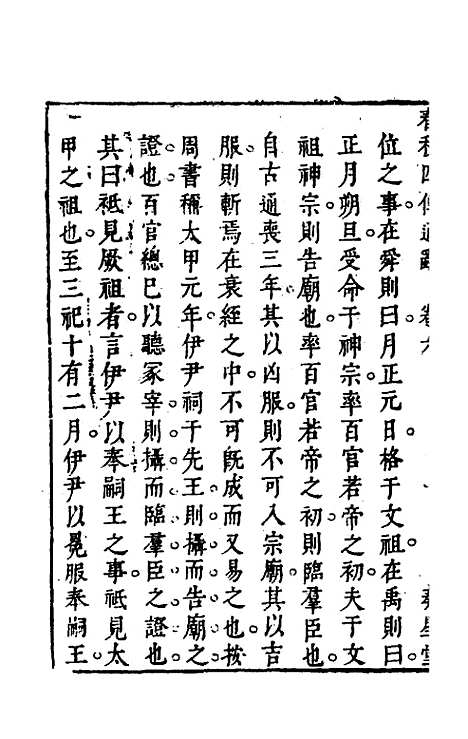 春秋四傳通辭 卷六
位之事在舜則曰月正元日格于文祖在禹則曰
正月朔旦受命于神宗率百官若帝之初夫于文
祖神宗則告廟也率百官若帝之初則臨羣臣也
自古通喪三年其以凶服則不可入宗廟其以吉
服則斬焉在衰絰之中不可旣成而又易之也按
周書稱太甲元年伊尹祠于先王則攝而告廟之
證也百官總已以聽冢宰則攝而臨羣臣之證也
其曰祇見厥祖者言伊尹以奉嗣王之事祇見太
甲之祖也至三祀十有二月伊尹以冕服奉嗣王